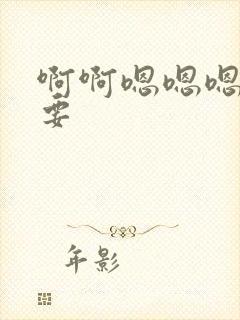 啊啊嗯嗯嗯
要
年影